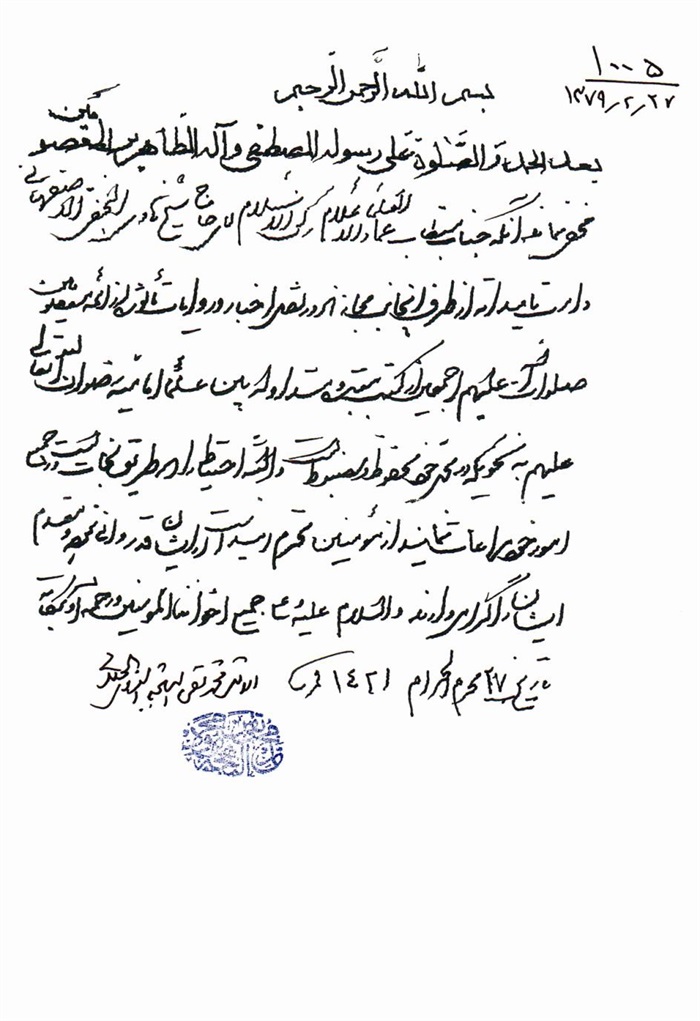 ۱۰۰۵
۱۳۷۹/۲/۲۷
بسم الله الرحمن الرحیم
بعد الحمد و الصلوة علی رسوله المصطفی و آله الطاهرین المعصومین
مخفی نماند آنکه جناب مستطاب عماد الاعلام رکن الاسلام آقای حاج شیخ هادی النجفی الاصفهانی
دامت تاییداته از طرف اینجانب مجازند در نقل اخبار و روایات مأثوره از ائمه معصومین
صلوات الله علیهم اجمعین از کتب معتبره متداوله بین علماء امامیه رضوان الله تعالی
علیهم به نحویکه در محل خود محفوظ و مضبوط است و البته احتیاط را که طریق نجات است در جمیع
امور خود مراعات نمایند از مؤمنین محترم امید است از ایشان قدردانی نموده و مقدم
ایشان را گرامی دارند والسلام علیه و علی جمیع اخواننا المؤمنین و رحمة الله و برکاته
تاریخ ۲۷ محرم الحرام ۱۴۲۱ الاحقر محمد تقی البهجة